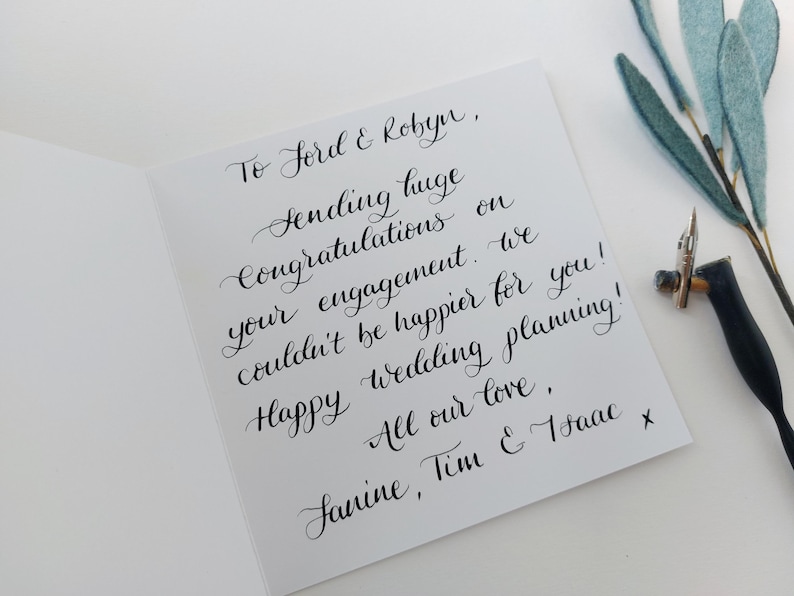 To Ford & Robyn,
Sending huge
Congratulations on
your engagement. We
couldn't be happier for you!
Happy wedding planning!
All our love,
Janine, Tim & Isaac x